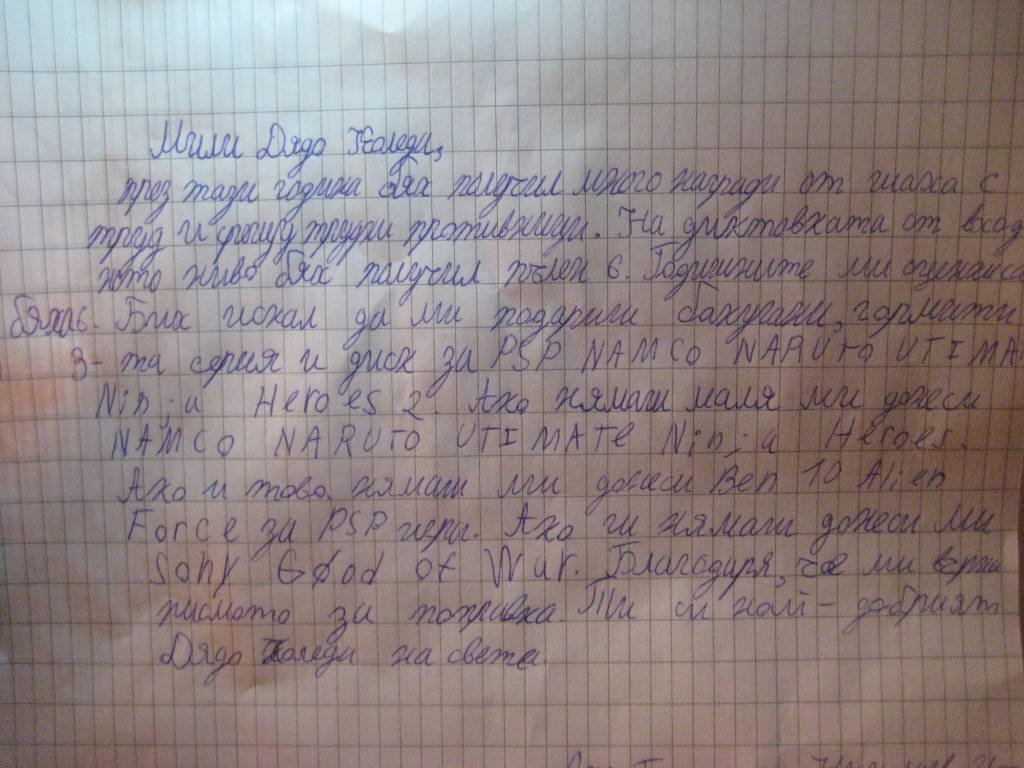 Мили Дядо Коледи,
през тази година бях получил много награди от шаха с
труд и срещу трудни противници. На диктовката от вход
ното ниво бях получил пълен 6. Годишните ми оценки са
бяха 6. Бих искал да ми подариш бакугани, гормити
3-та серия и диск за PSP NAMCO NARUTO UTIMATE
Ninja Heroes 2. Ако нямаш маля ми донеси
NAMCO NARUTO UTIMATE Ninja Heroes.
Ако и това нямаш ми донеси Ben 10 Alien
Force за PSP игри. Ако ги нямаш донеси ми
Sony Good of War. Благодаря, че ми
писмото за поправка. Ти си най-добрият
Дядо Коледи на света.